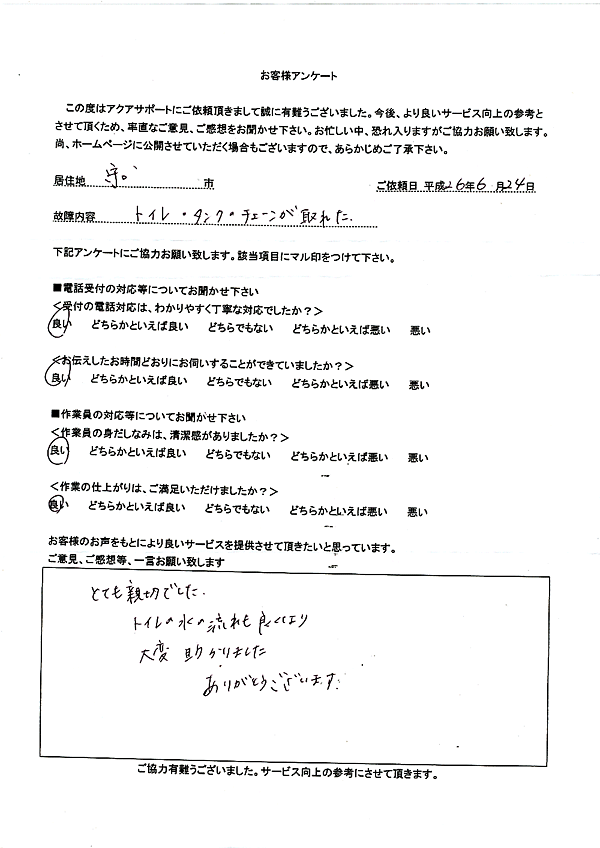 お客様アンケート
この度はアクアサポートにご依頼頂きまして誠に有難うございました。今後、より良いサービス向上の参考と
させて頂くため、率直なご意見、ご感想をお聞かせ下さい。お忙しい中、恐れ入りますがご協力お願い致します。
尚、ホームページに公開させていただく場合もございますので、あらかじめご了承下さい。
居住地 守口 市 ご依頼日 平成26年6月24日
故障内容 トイレ・タンク・チェーンが取れた.
下記アンケートにご協力お願い致します。該当項目にマル印をつけて下さい。
■電話受付の対応等についてお聞かせ下さい
<受付の電話対応は、わかりやすく丁寧な対応でしたか?>
良い どちらかといえば良い どちらでもない どちらかといえば悪い 悪い
<お伝えしたお時間どおりにお伺いすることができていましたか?>
良い どちらかといえば良い どちらでもない どちらかといえば悪い 悪い
■作業員の対応等についてお聞かせ下さい
<作業員の身だしなみは、清潔感がありましたか?>
良い どちらかといえば良い どちらでもない どちらかといえば悪い 悪い
<作業の仕上がりは、ご満足いただけましたか?>
良い どちらかといえば良い どちらでもない どちらかといえば悪い 悪い
お客様のお声をもとにより良いサービスを提供させて頂きたいと思っています。
ご意見、ご感想等、一言お願い致します
とても親切でした.
トイレの水の流れも良くなり
大変助かりました
ありがとうございます.
ご協力有難うございました。サービス向上の参考にさせて頂きます。